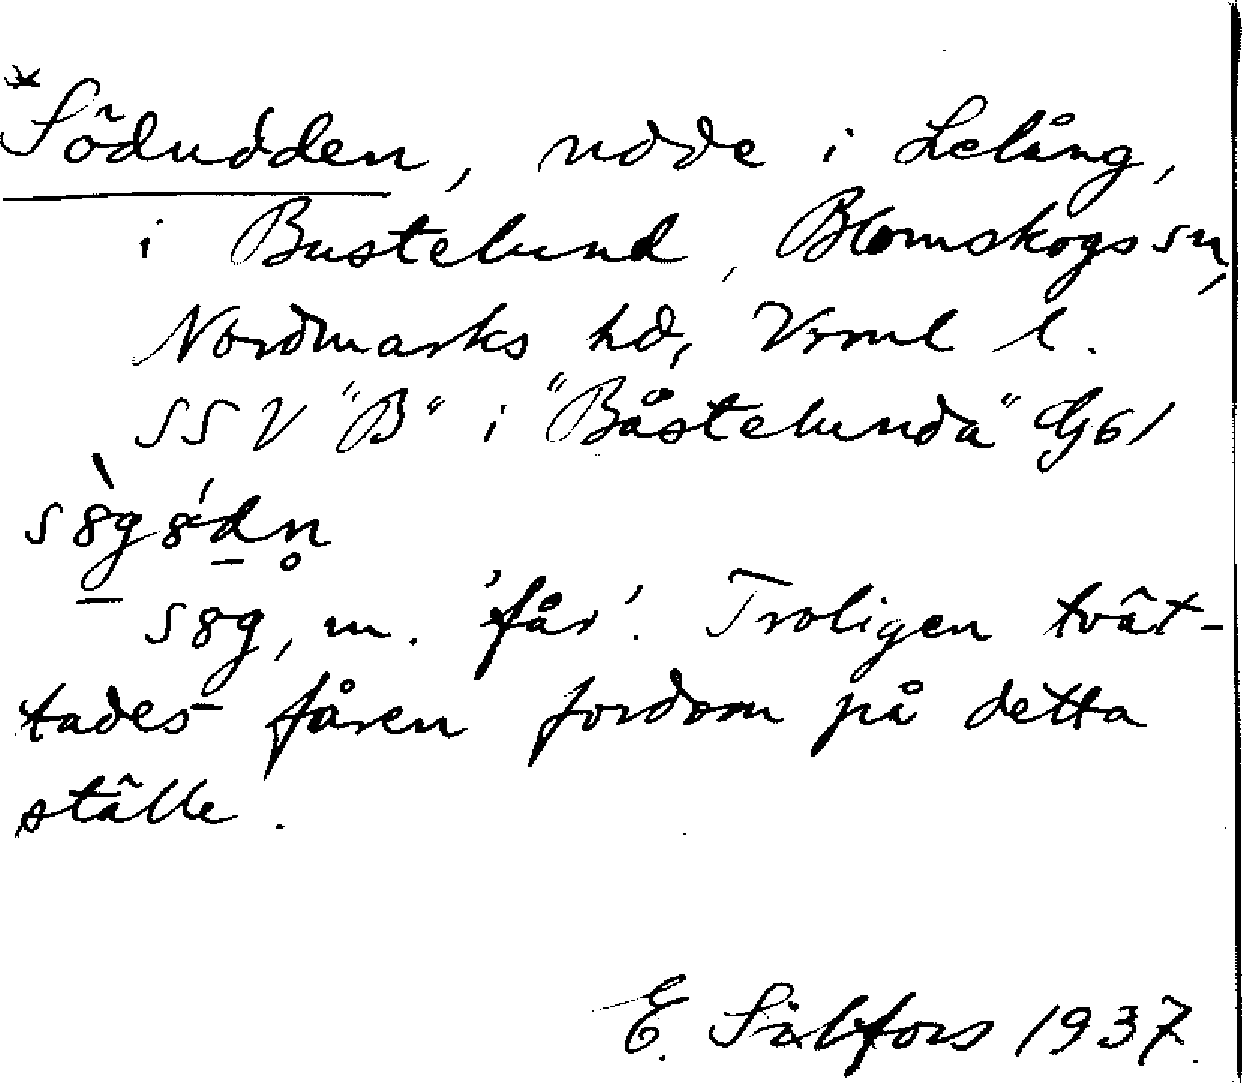 *Södudden, udde i Lelång,
i Bustelund, Blomskogs sn,
Nordmarks hd, Vrml l.
SSV "B" i "Båstelunda" G61
s8̀g8́dn̥
s8g, m. 'får'. Troligen tvät-
tades fåren fordom på detta
ställe.
E. Sälfors 1937.